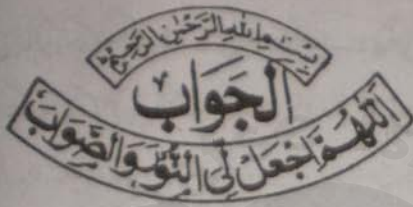 بِسْمِ اللهِ الرَّحْمٰنِ الرَّحِيْمِ
اَلْجَوَابُ
اَللّٰهُمَّ اجْعَلْ لِی النُّوْرَ وَالصَّوَابَ